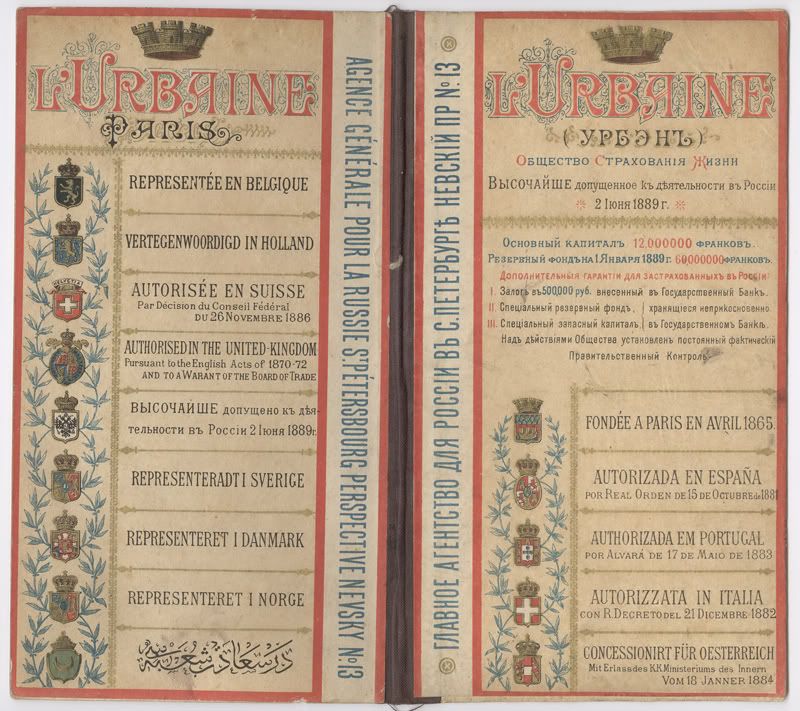 L'URBAINE
PARIS
REPRESENTÉE EN BELGIQUE
VERTEGENWOORDIGD IN HOLLAND
AUTORISÉE EN SUISSE
Par Décision du Conseil Fédéral
DU 26 NOVEMBRE 1886
AUTHORISED IN THE UNITED-KINGDOM
Pursuant to the English Acts of 1870-72
AND TO A WARANT OF THE BOARD OF TRADE
ВЫСОЧАЙШЕ допущено къ дѣя-
тельности въ Россіи 2 Іюня 1889г.
REPRESENTERADT I SVERIGE
REPRESENTERET I DANMARK
REPRESENTERET I NORGE
درسعادت شعبه سی
AGENCE GÉNÉRALE POUR LA RUSSIE ST PÉTERSBOURG PERSPECTIVE NEVSKY No: 13
ГЛАВНОЕ АГЕНТСТВО ДЛЯ РОССІИ ВЪ С. ПЕТЕРБУРГѢ НЕВСКІЙ ПР No 13
L'URBAINE
(УРБЭНЪ)
ОБЩЕСТВО СТРАХОВАНІЯ ЖИЗНИ
ВЫСОЧАЙШЕ допущенное къ дѣятельности въ Россіи
2 Іюня 1889 г.
ОСНОВНЫЙ КАПИТАЛЪ 12.000000 ФРАНКОВЪ.
РЕЗЕРВНЫЙ ФОНДЪ НА 1 ЯНВАРЯ 1889 г. 60000000 ФРАНКОВЪ.
ДОПОЛНИТЕЛЬНЫЯ ГАРАНТІИ ДЛЯ ЗАСТРАХОВАННЫХЪ ВЪ РОССІИ:
I. Залогъ въ 500000 руб. внесенный въ Государственный Банкъ.
II. Спеціальный резервный фондъ, хранящіеся неприкосновенно
III. Спеціальный запасный капиталъ, въ Государственномъ Банкѣ.
Надъ дѣйствіями Общества установленъ постоянный фактическій
Правительственный Контроль.
FONDÉE A PARIS EN AVRIL 1865.
AUTORIZADA EN ESPAÑA
POR REAL ORDEN DE 15 DE OCTUBRE de 1881
AUTHORIZADA EM PORTUGAL
POR ALVARÁ DE 17 DE MAIO DE 1883
AUTORIZZATA IN ITALIA
CON R. DECRETO DEL 21 DICEMBRE 1882
CONCESSIONIRT FÜR OESTERREICH
Mit Erlass des K.K. Ministeriums des Innern
VOM 18 JANNER 1884